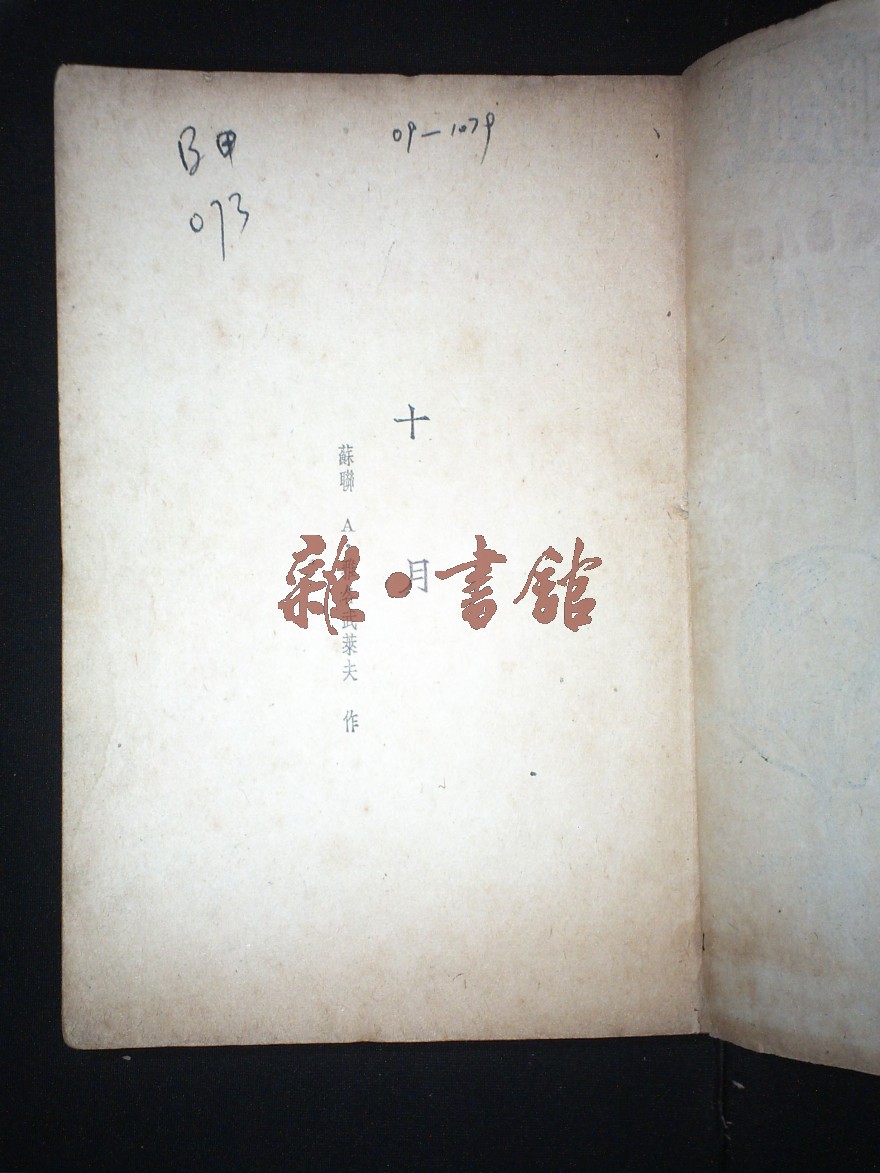 B甲
073
09-1079
十月
蘇聯 A 武萊夫 作
雜·書舘